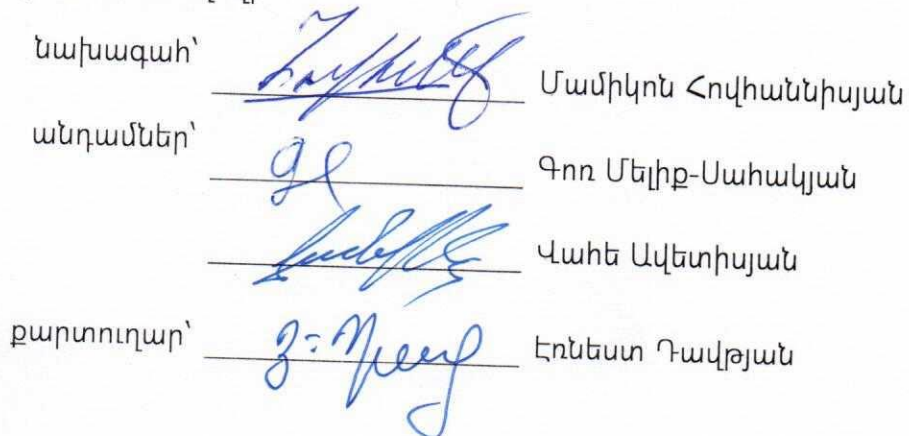 նախագահ՝
Մամիկոն Հովհաննիսյան
անդամներ՝
Գոռ Մելիք-Սահակյան
Վահե Ավետիսյան
քարտուղար՝
Էռնեստ Դավթյան